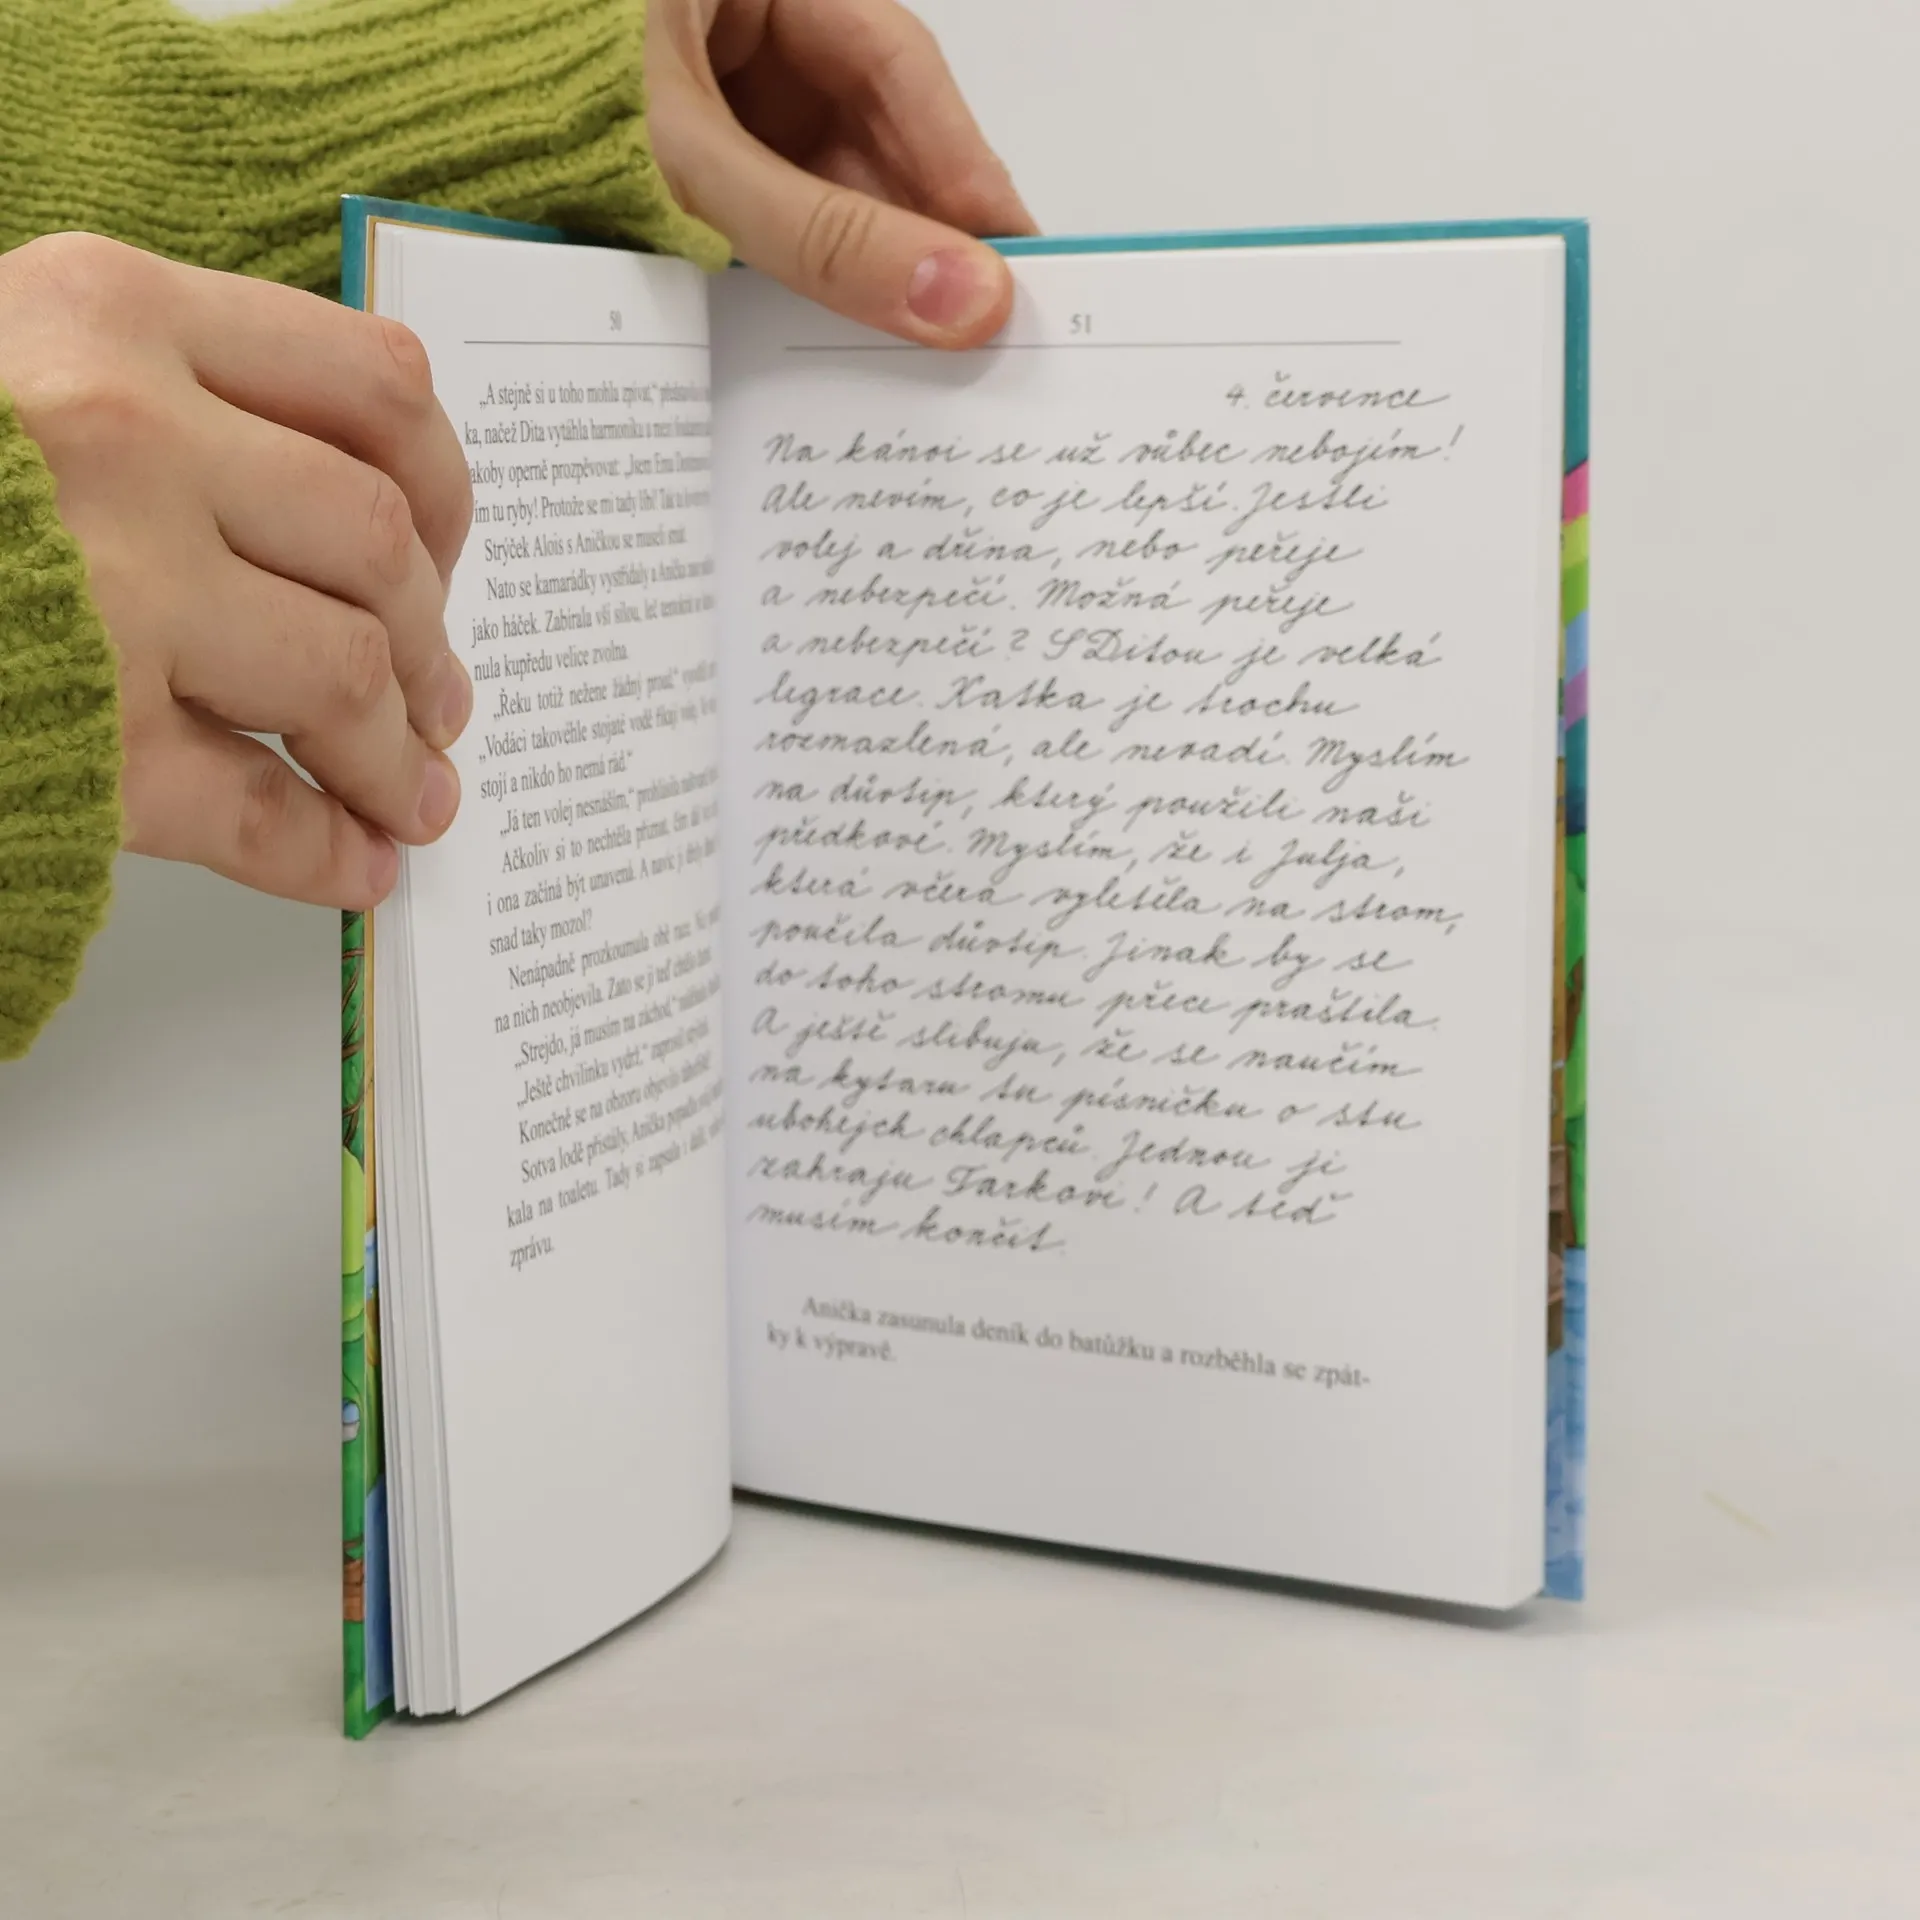 50
„A stejně si u toho mohla zpívat,“
ka, načež Dita vytáhla harmoniku a mezi
jakoby operně prozpěvovat: „Jsem Ema
ím tu ryby! Protože se mi tady líbí! Tak to
Strýček Alois s Aničkou se museli smát.
Nato se kamarádky vystřídaly a Anička
jako háček. Zabírala vší silou, leč tentokrát se
nula kupředu velice zvolna.
„Řeku totiž nežene žádný proud,“
„Vodáci takovéhle stojaté vodě říkají volej,
stojí a nikdo ho nemá rád.“
„Já ten volej nesnáším,“ prohlásila
Ačkoliv si to nechtěla přiznat, čím dál
i ona začíná být unavená. A navíc ji
snad taky mozol?
Nenápadně prozkoumala obě ruce.
na nich neobjevila. Zato se jí teď chtělo
„Strejdo, já musím na záchod,“
„Ještě chvilinku vydrž,“ zaprosil strýček.
Konečně se na obzoru objevilo tábořiště.
Sotva lodě přistály, Anička popadla svůj
kala na toaletu. Tady si zapsala i další,
zprávu.
51
4. července
Na kánoi se už vůbec nebojím!
Ale nevím, co je lepší. Jestli
volej a dřina, nebo peřeje
a nebezpečí. Možná peřeje
a nebezpečí? S Ditou je velká
legrace. Katka je trochu
rozmazlená, ale nevadí. Myslím
na důvtip, který použili naši
předkové. Myslím, že i Julja,
která včera vyletěla na strom,
použila důvtip. Jinak by se
do toho stromu přece praštila.
A ještě slibuju, že se naučím
na kytaru tu písničku o stu
ubohejch chlapců. Jednou ji
zahraju Farkovi! A teď
musím končit.
Anička zasunula deník do batůžku a rozběhla se zpát-
ky k výpravě.